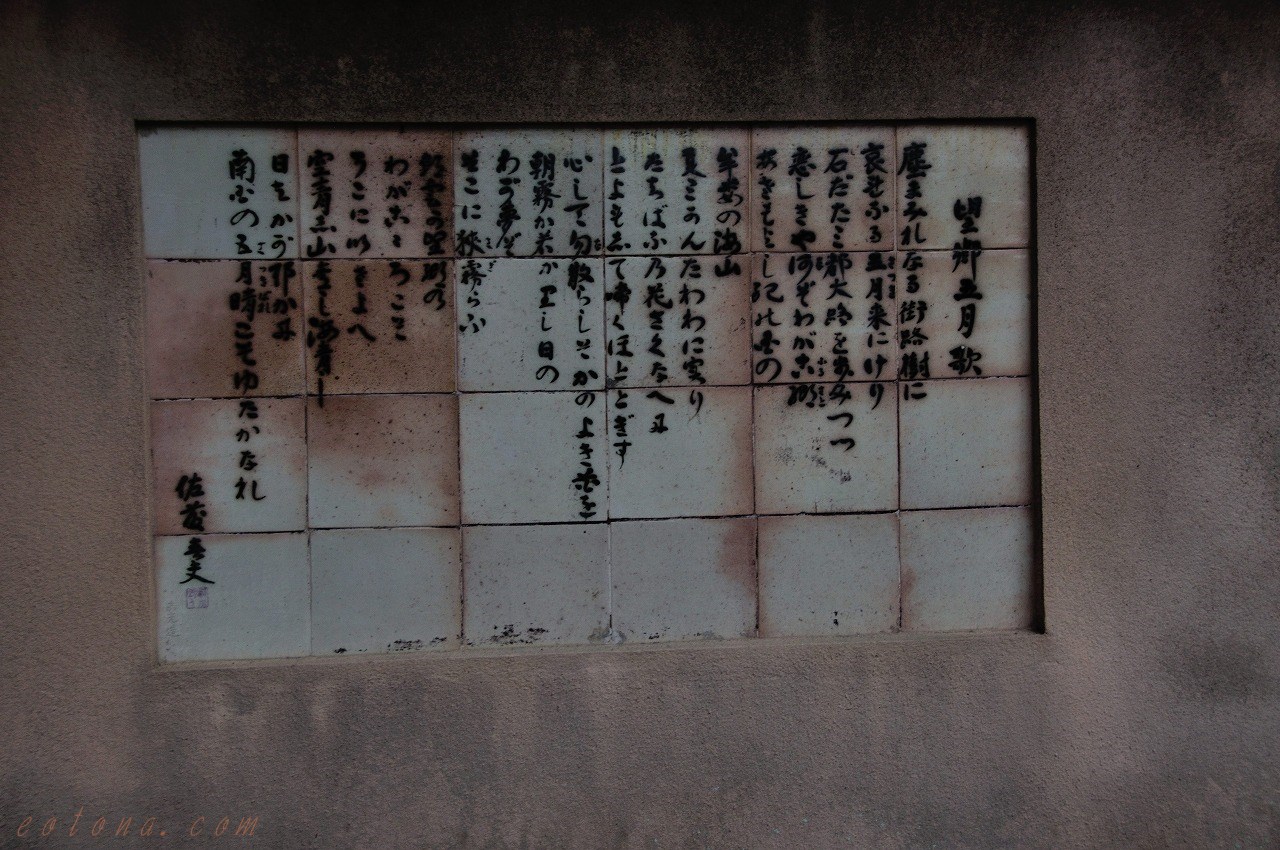 望郷五月歌
塵まみれなる街路樹に
哀れなる五月来にけり
石だたみ都大路を歩みつつ
恋しきや何ぞわが古郷
あさもよし紀の国の
牟婁の海山
夏みかんたわわに実り
たちばなの花さくなへに
とよもして啼くほととぎす
心して勿散らしそかのよき花を
朝霧か若かりし日の
わが夢ぞ
そこに狭霧らふ
朝雲か望郷の
わがこころこそ
そこにいさよへ
空青し山青し海青し
日はかがやかに
南国の五月晴こそゆたかなれ
佐藤春夫
eotona.com